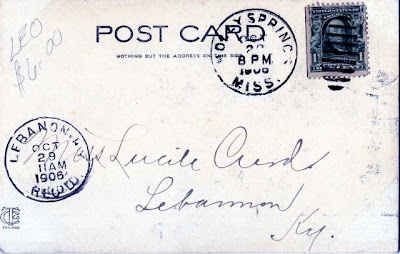 LEO
POST CARD
NOTHING BUT THE ADDRESS ON THIS SIDE
HOLLY SPRINGS
OCT
8 PM
1906
MISS.
LEBANON, KY.
OCT
29
11AM
1906
REC'D.
Miss Lucile
Lebannon
Ky.